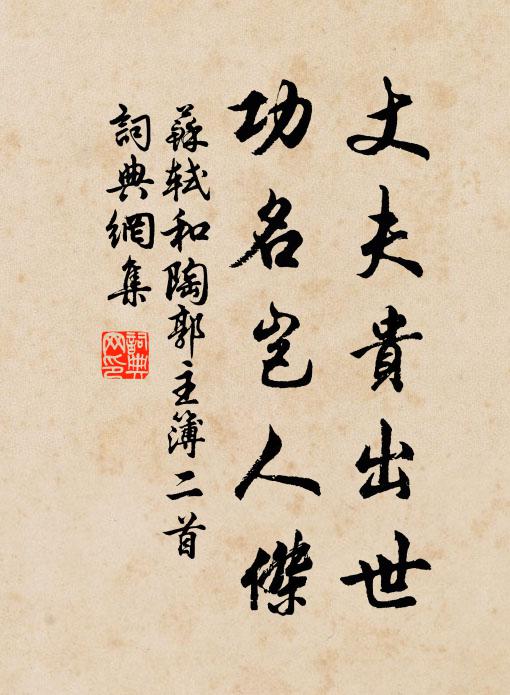 丈夫貴出世
功名豈人傑
蘇軾和陶郭主簿二首
詞典網集
詞典網印